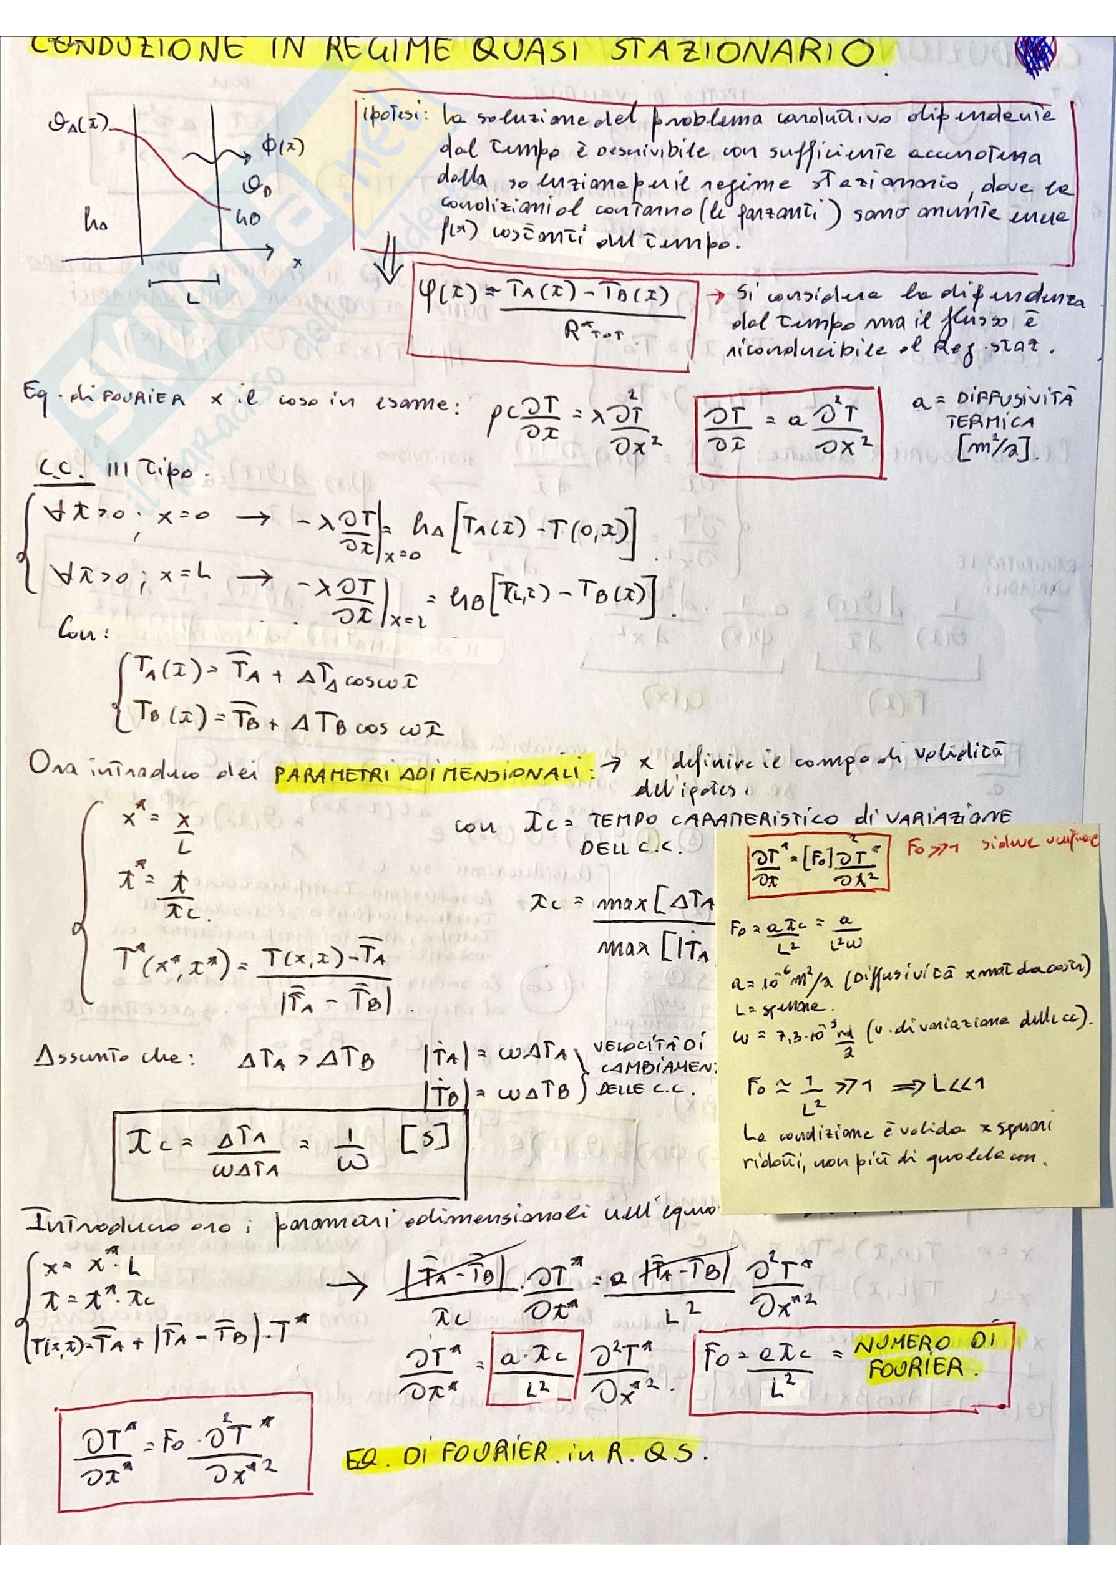 CONDUZIONE IN REGIME QUASI STAZIONARIO.
ϑA(τ)
Φ(τ)
ϑB
hA
hB
x
L
ipotesi: la soluzione del problema conduttivo dipendente
dal tempo è descrivibile con sufficiente accuratezza
dalla soluzione per il regime stazionario, dove le
condizioni al contorno (le forzanti) sono assunte
f(x) costanti del tempo.
φ(τ) = TA(τ) - TB(τ) / R*TOT
→ Si considera la dipendenza
dal tempo ma il flusso è
riconducibile al Reg. stat.
Eq. di FOURIER x il caso in esame: ρc ∂T/∂τ = λ ∂²T/∂x²
∂T/∂τ = a ∂²T/∂x²
a = DIFFUSIVITÀ
TERMICA
[m²/s].
C.C. III Tipo.
∀τ>0; x=0 → -λ ∂T/∂x|x=0 = hA [TA(τ) - T(0,τ)]
∀τ>0; x=L → -λ ∂T/∂x|x=L = hB [T(L,τ) - TB(τ)].
Con:
TA(τ) = T̄A + ΔTA cos ωτ
TB(τ) = T̄B + ΔTB cos ωτ
Ora introduco dei PARAMETRI ADIMENSIONALI: → x definire il campo di validità
dell'ipotesi.
x* = x/L
τ* = τ/τc.
T*(x*,τ*) = T(x,τ) - T̄A / |T̄A - T̄B|.
con τc = TEMPO CARATTERISTICO di VARIAZIONE
DELL C.C.
τc = max[ΔTA / max[|ṪA
∂T*/∂τ = [Fo] ∂²T*/∂x²
Fo>>1 si deve verificare
Fo = aτc/L² = a/L²ω
a = 10⁻⁶ m²/s (Diffusività x mat da costr)
L = spessore.
ω = 7,3·10⁻⁵ rad/s (v. di variazione delle cc).
Fo ≃ 1/L² >>1 ⇒ L<<1
La condizione è valida x spessori
ridotti, non più di qualche cm.
Assunto che: ΔTA > ΔTB
|ṪA| = ωΔTA
|ṪB| = ωΔTB
VELOCITÀ DI
CAMBIAMEN
DELLE C.C.
τc = ΔTA/ωΔTA = 1/ω [s]
Introduciamo ora i parametri adimensionali nell'equa
x = x*·L
τ = τ*·τc
T(x,τ) = T̄A + |T̄A - T̄B|·T*
→ |T̄A - T̄B|/τc · ∂T*/∂τ* = a |T̄A - T̄B|/L² ∂²T*/∂x*²
∂T*/∂τ* = a·τc/L² ∂²T*/∂x*².
Fo = aτc/L² = NUMERO DI
FOURIER.
∂T*/∂τ* = Fo · ∂²T*/∂x*²
EQ. DI FOURIER. in R.Q.S.
skuola.net